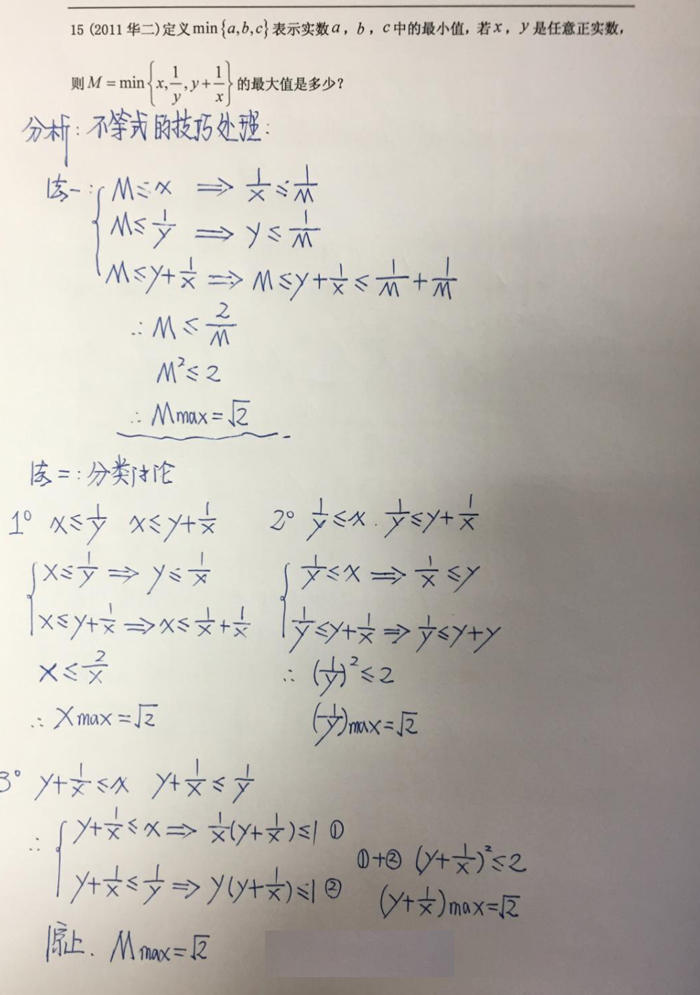 15 (2011 华二)定义 min{a,b,c} 表示实数 a，b，c 中的最小值，若 x，y 是任意正实数，
则 M = min{x, 1/y, y + 1/x} 的最大值是多少？
分析：不等式的技巧处理：
法一：{ M ≤ x ⟹ 1/x ≤ 1/M
M ≤ 1/y ⟹ y ≤ 1/M
M ≤ y + 1/x ⟹ M ≤ y + 1/x ≤ 1/M + 1/M
∴ M ≤ 2/M
M² ≤ 2
∴ Mmax = √2
法二：分类讨论
1° x ≤ 1/y x ≤ y + 1/x
{ x ≤ 1/y ⟹ y ≤ 1/x
x ≤ y + 1/x ⟹ x ≤ 1/x + 1/x
x ≤ 2/x
∴ Xmax = √2
2° 1/y ≤ x . 1/y ≤ y + 1/x
{ 1/y ≤ x ⟹ 1/x ≤ y
1/y ≤ y + 1/x ⟹ 1/y ≤ y + y
∴ (1/y)² ≤ 2
(1/y)max = √2
3° y + 1/x ≤ x y + 1/x ≤ 1/y
∴ { y + 1/x ≤ x ⟹ 1/x(y + 1/x) ≤ 1 ①
y + 1/x ≤ 1/y ⟹ y(y + 1/x) ≤ 1 ②
①+② (y + 1/x)² ≤ 2
(y + 1/x)max = √2
综上. Mmax = √2